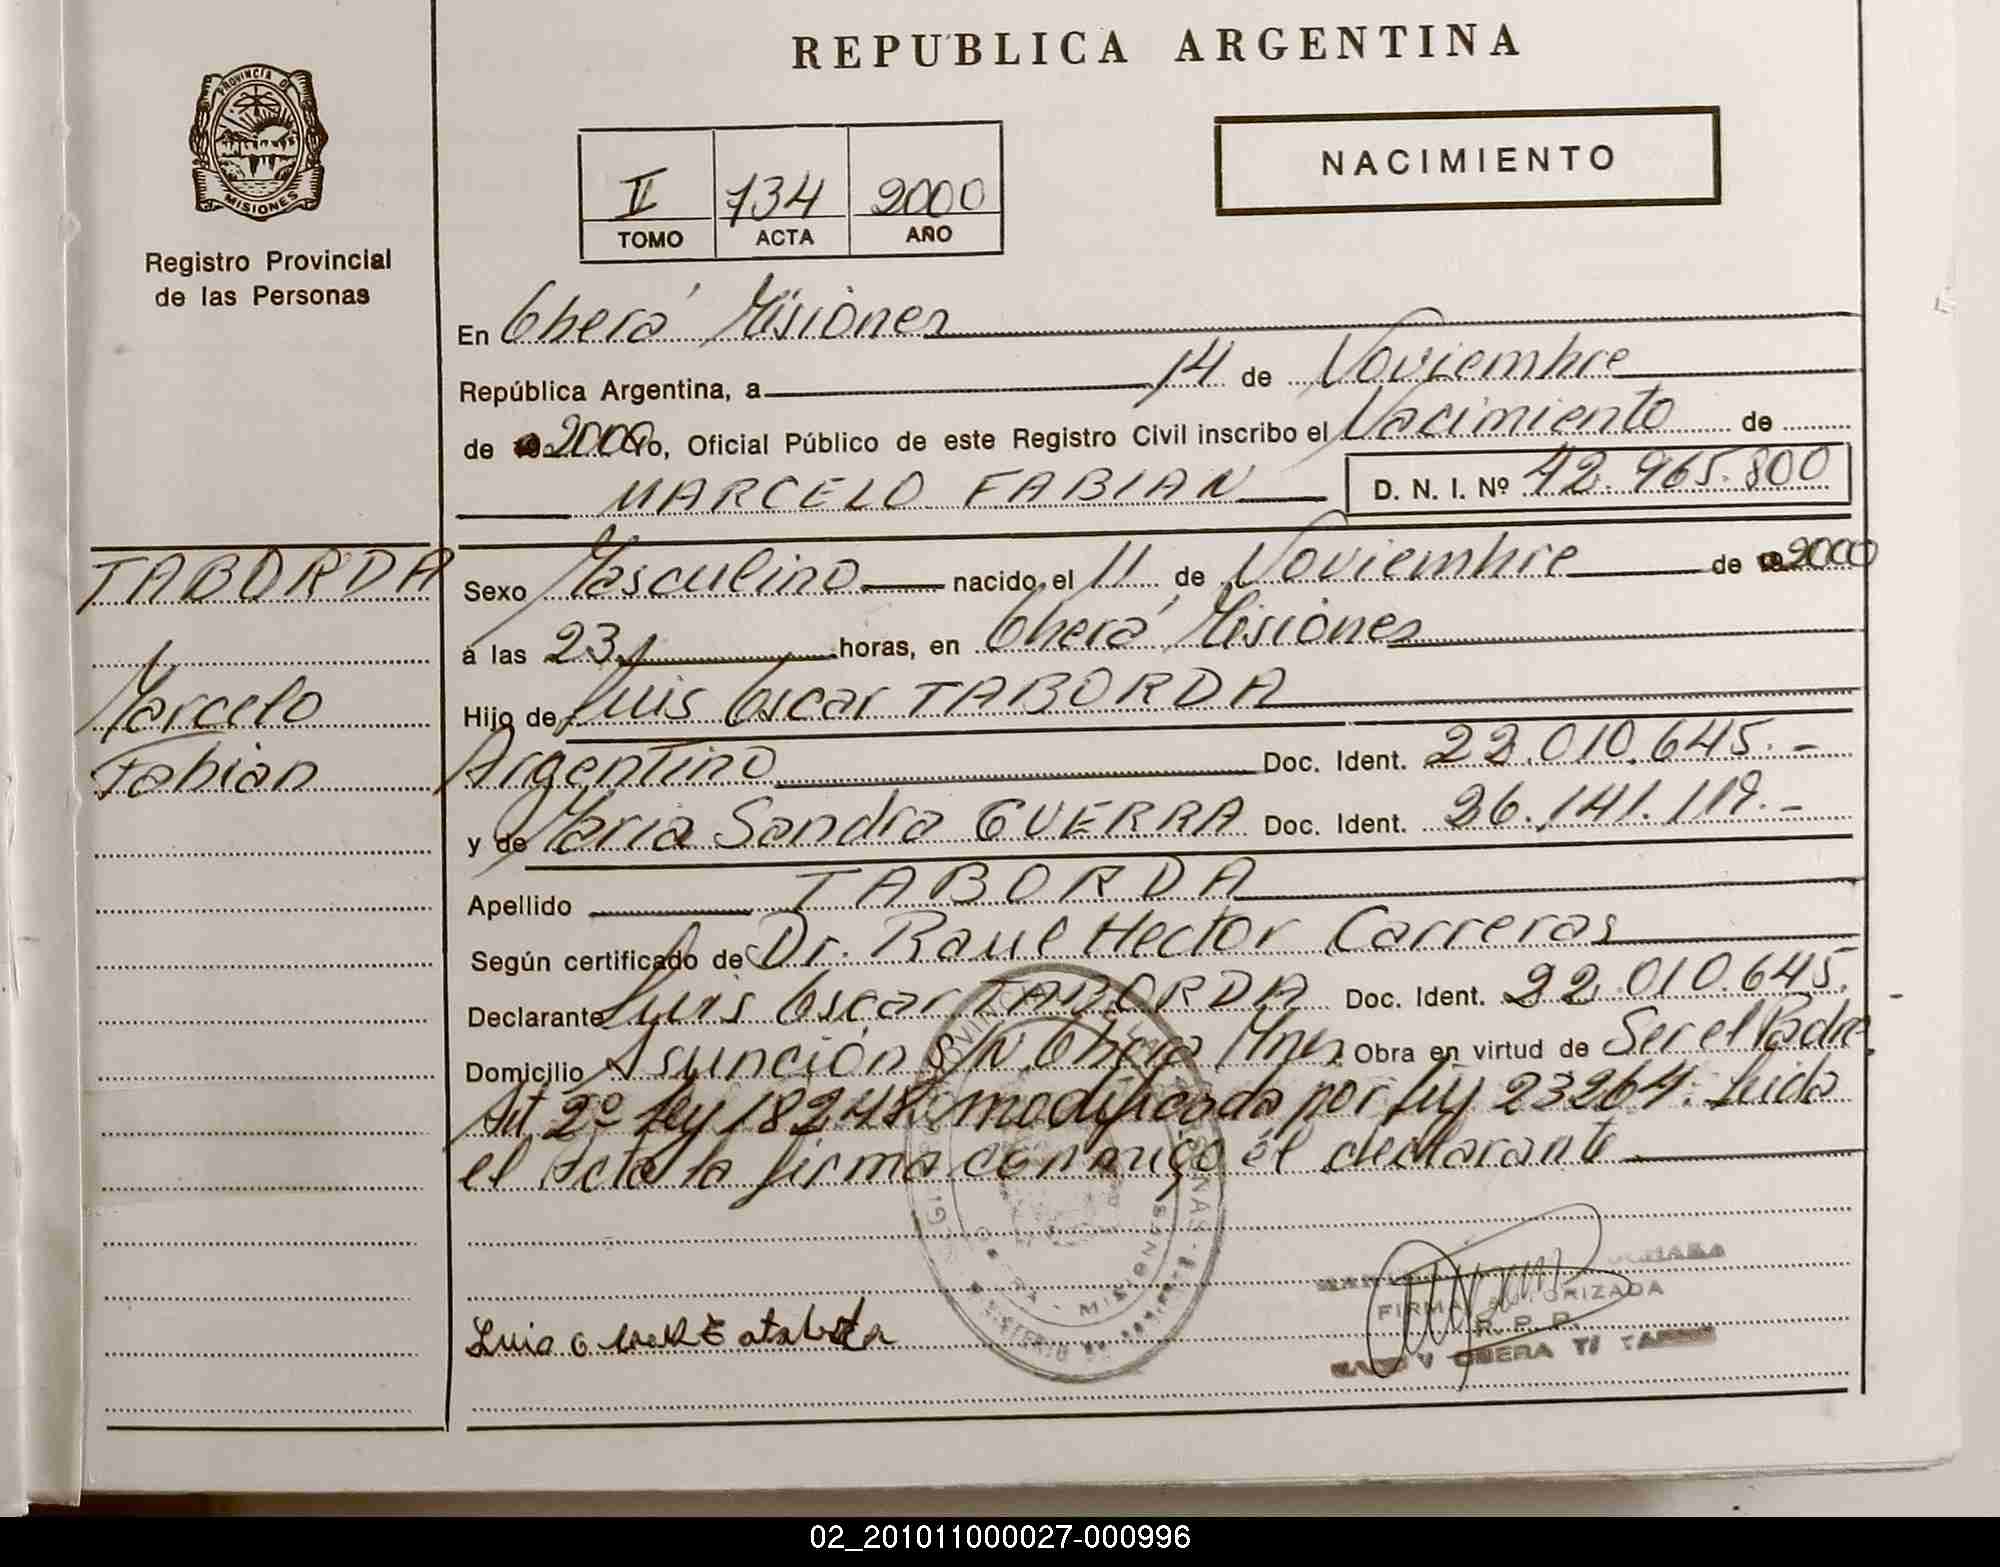 REPUBLICA ARGENTINA
PROVINCIA DE
MISIONES
Registro Provincial
de las Personas
II 734 2000
TOMO ACTA AÑO
NACIMIENTO
En Oberá Misiones
República Argentina, a 14 de Noviembre
de 2000 Yo, Oficial Público de este Registro Civil inscribo el Nacimiento de
MARCELO FABIAN D. N. I. Nº 42.965.800
TABORDA
Marcelo
Fabian
Sexo Masculino nacido el 11 de Noviembre de 2000
a las 23 horas, en Oberá Misiones
Hijo de Luis Oscar TABORDA
Argentino Doc. Ident. 22.010.645.-
y de Maria Sandra GUERRA Doc. Ident. 26.141.119.-
Apellido TABORDA
Según certificado de Dr. Raul Hector Carreras
Declarante Luis Oscar TABORDA Doc. Ident. 22.010.645.-
Domicilio Asunción S/N Oberá Mnes. Obra en virtud de Ser el Padre.
Art 2º Ley 18248 modificada por Ley 23264. Leida
el Acta la firma conmigo el declarante
FIRMA AUTORIZADA
R. P. P.
OBERA
MISIONES
02_201011000027-000996